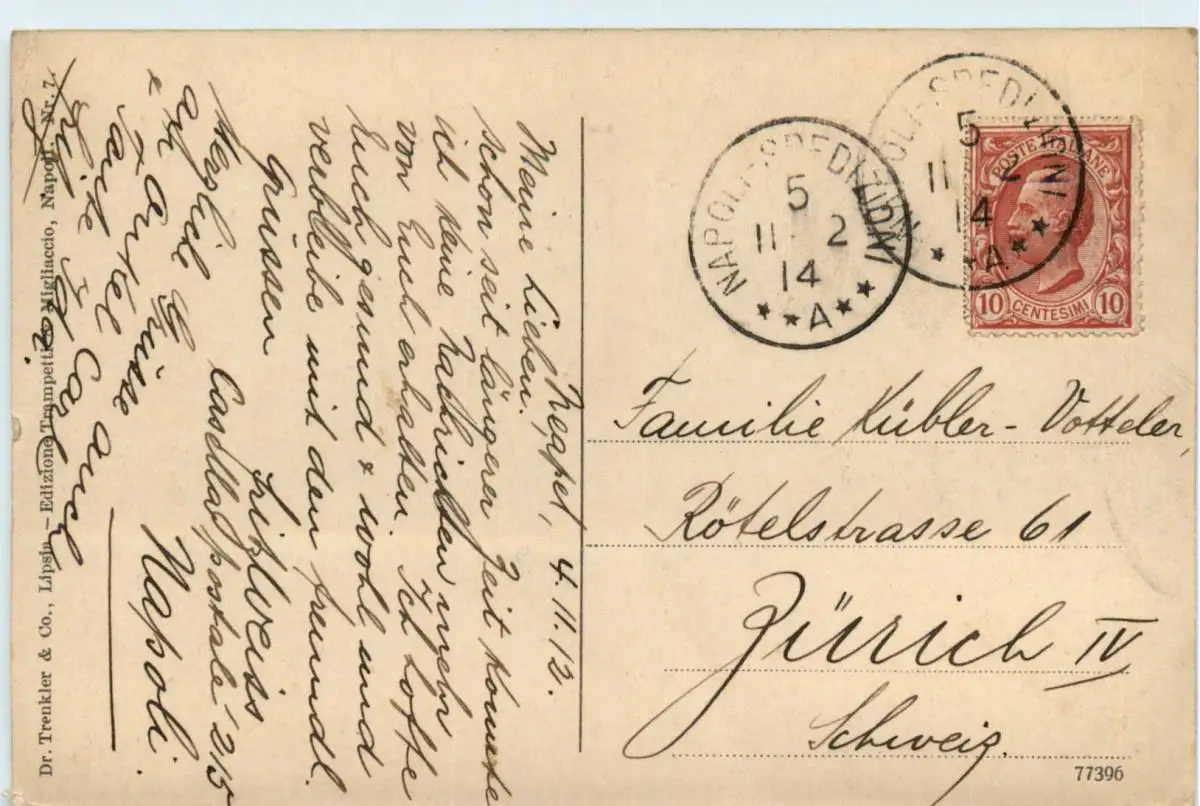 Neapel, 4.11.12.
Meine Lieben.
Schon seit längerer Zeit konnte
ich keine Nachrichten mehr
von Euch erhalten. Ich hoffe
Euch gesund & wohl und
verbleibe mit den freundl.
Grüssen
Fritz Weiss
Casella postale 215
Napoli.
Herzlich
auch
Onkel Carl
Tante
Dr. Trenkler & Co., Lipsia – Edizione Trampetti Migliaccio, Napoli, Nr. 7.
NAPOLI-SPEDIZIONI
5
11 2
14
A
NAPOLI-SPEDIZIONI
5
11 2
14
A
POSTE ITALIANE
10 CENTESIMI 10
Familie Kübler-Votteler,
Rötelstrasse 61
Zürich IV
Schweiz.
77396